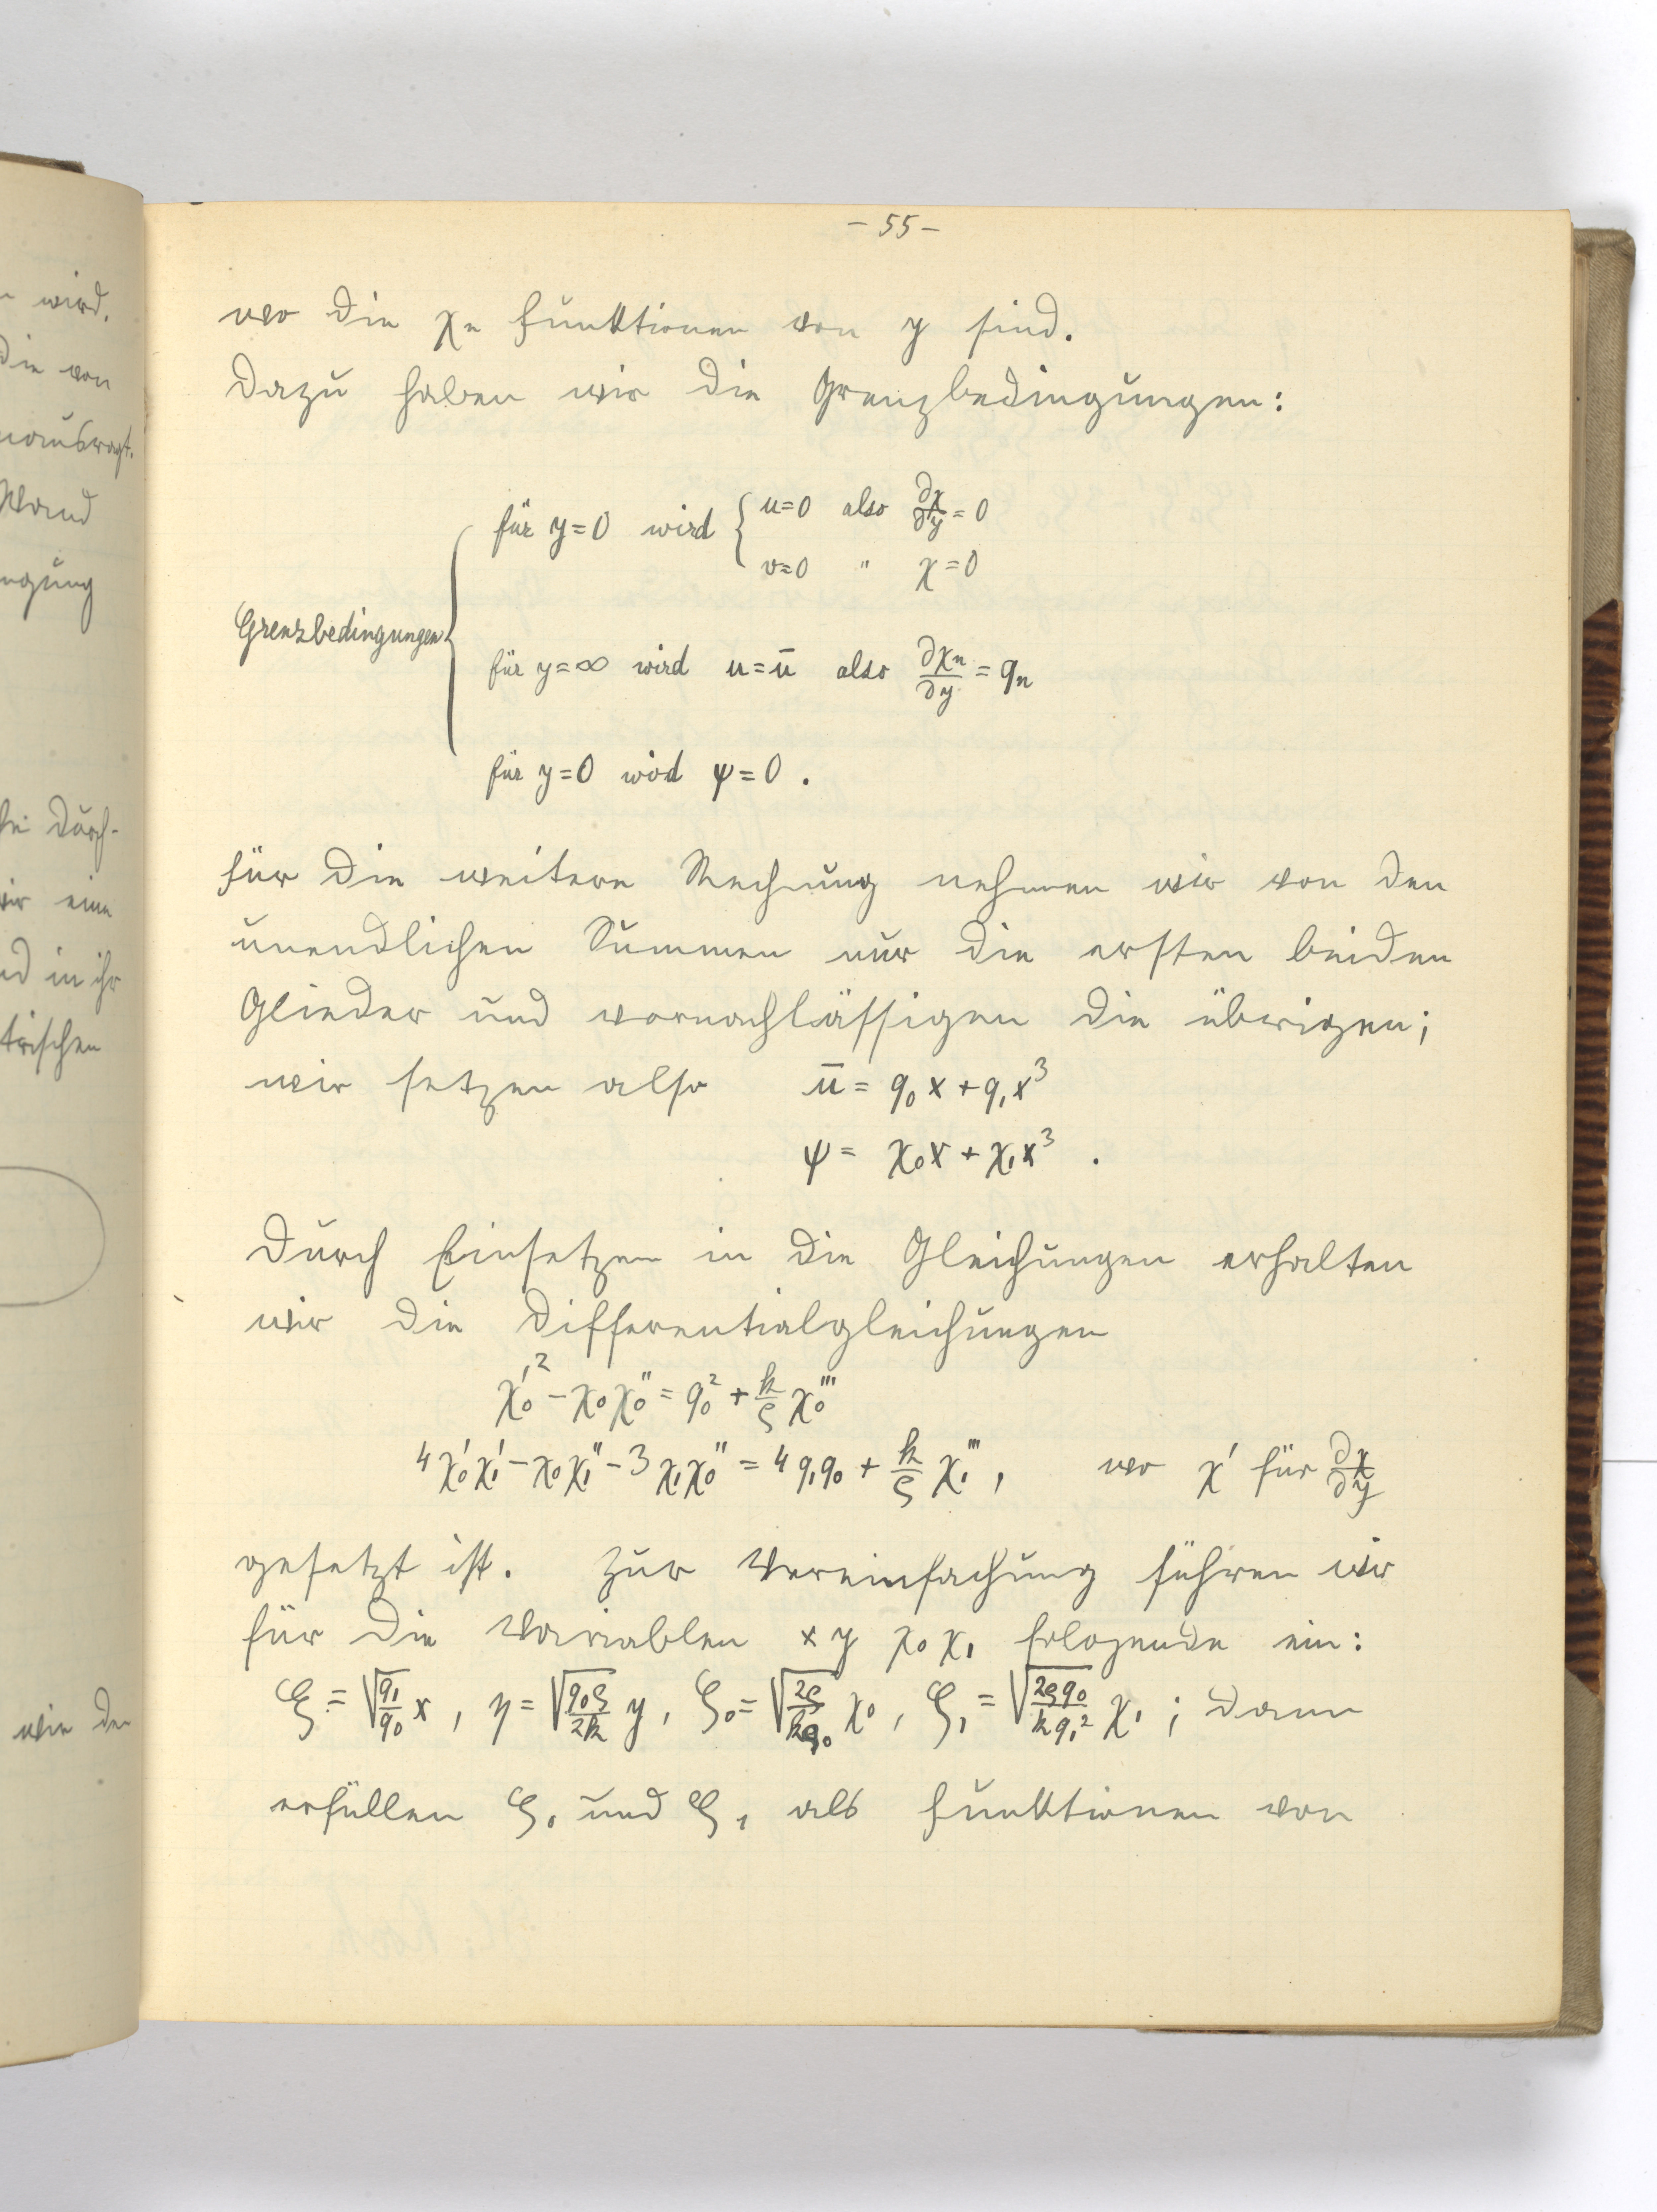 wird.
die von
Wand
ngung
Durch-
wir eine
nd in ihr
trischen
wie der
– 55 –
wo die χₙ Funktionen von y sind.
Dazu haben wir die Grenzbedingungen:
Grenzbedingungen
für y=0 wird { u=0 also ∂χ/∂y = 0
v=0 " χ=0
für y=∞ wird u=ū also ∂χₙ/∂y = qₙ
für y=0 wird ψ=0 .
Für die weitere Rechnung nehmen wir von den
unendlichen Summen nur die ersten beiden
Glieder und vernachlässigen die übrigen;
wir setzen also ū = q₀x + q₁x³
ψ = χ₀x + χ₁x³ .
Durch Einsetzen in die Gleichungen erhalten
wir die Differentialgleichungen
χ₀'² − χ₀χ₀'' = q₀² + k/ρ χ₀'''
4χ₀'χ₁' − χ₀χ₁'' − 3χ₁χ₀'' = 4q₁q₀ + k/ρ χ₁''' , wo χ' für ∂χ/∂y
gesetzt ist. Zur Vereinfachung führen wir
für die Variablen x y χ₀ χ₁ folgende ein:
ξ = √(q₁/q₀) x , η = √(q₀ρ/2k) y , ζ₀ = √(2ρ/kq₀) χ₀ , ζ₁ = √(2ρq₀/kq₁²) χ₁ ; dann
erfüllen ζ₀ und ζ₁ als Funktionen von